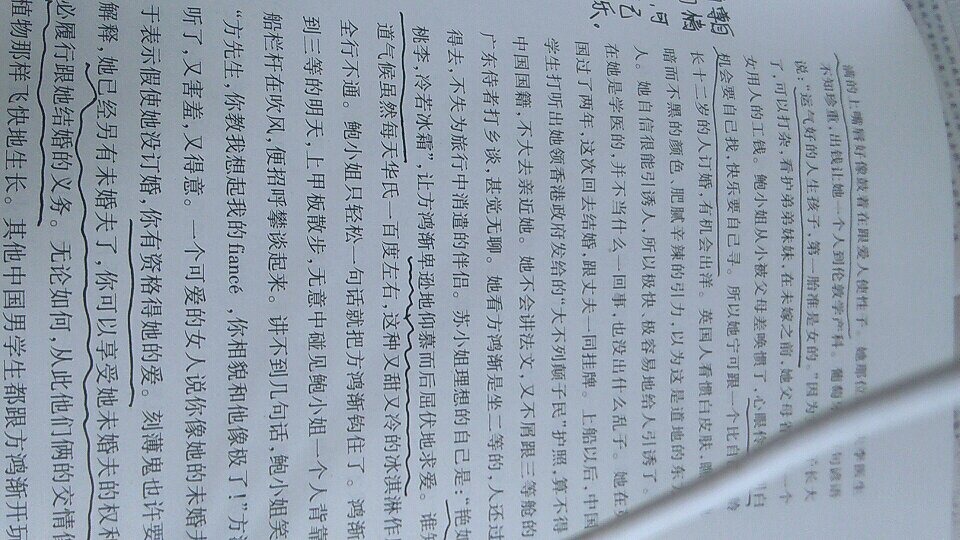 翻
可
己
乐。
满的上嘴唇好像鼓着在跟爱人使性子。她那位 李医生
不知珍重,出钱让她一个人到伦敦学产科。葡萄 句谚语
说:“运气好的人生孩子,第一胎准是女的。”因为 长大
了,可以打杂,看护弟弟妹妹,在未嫁之前,她父母省 一个
女用人的工钱。鲍小姐从小被父母差唤惯了,心眼 白
机会要自己找,快乐要自己寻。所以她宁可跟一个比自
长十二岁的人订婚,有机会出洋。英国人看惯白皮肤,
暗而不黑的颜色、肥腻辛辣的引力,以为这是道地的东
人。她自信很能引诱人,所以极快、极容易地给人引诱了。
在她是学医的,并不当什么一回事,也没出什么乱子。她在
国过了两年,这次回去结婚,跟丈夫一同挂牌。上船以后,中国
学生打听出她领香港政府发给的“大不列颠子民”护照,算不得
中国国籍,不大去亲近她。她不会讲法文,又不屑跟三等舱的
广东侍者打乡谈,甚觉无聊。她看方鸿渐是坐二等的,人还过
得去,不失为旅行中消遣的伴侣。苏小姐理想的自己是:“艳如
桃李,冷若冰霜”,让方鸿渐卑逊地仰慕而后屈伏地求爱。谁
道气候虽然每天华氏一百度左右,这种又甜又冷的冰淇淋作
全行不通。鲍小姐只轻松一句话就把方鸿渐钩住了。鸿渐
到三等的明天,上甲板散步,无意中碰见鲍小姐一个人背靠
船栏杆在吹风,便招呼攀谈起来。讲不到几句话,鲍小姐笑
“方先生,你教我想起我的fiancé,你相貌和他像极了!”方
听了,又害羞,又得意。一个可爱的女人说你像她的未婚
于表示假使她没订婚,你有资格得她的爱。刻薄鬼也许要
解释,她已经另有未婚夫了,你可以享受她未婚夫的权利
必履行跟她结婚的义务。无论如何,从此他们俩的交情
植物那样飞快地生长。其他中国男学生都跟方鸿渐开玩